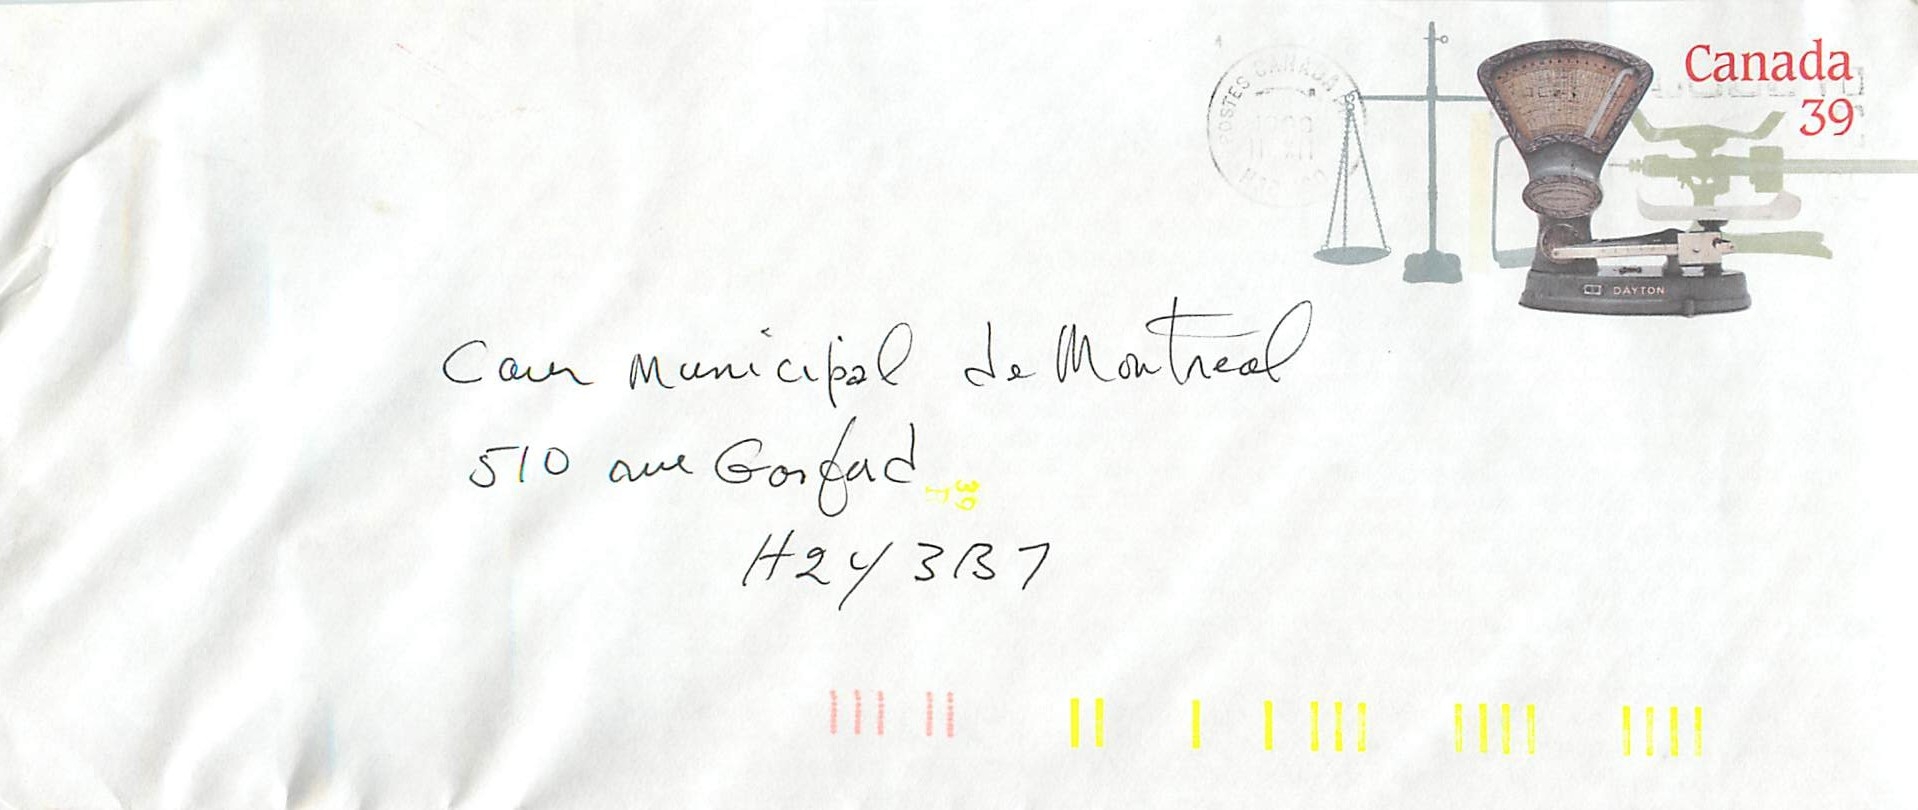 Canada
39
POSTES CANADA
DAYTON
Cour Municipal de Montreal
510 ave Gosford
39
H2Y 3B7